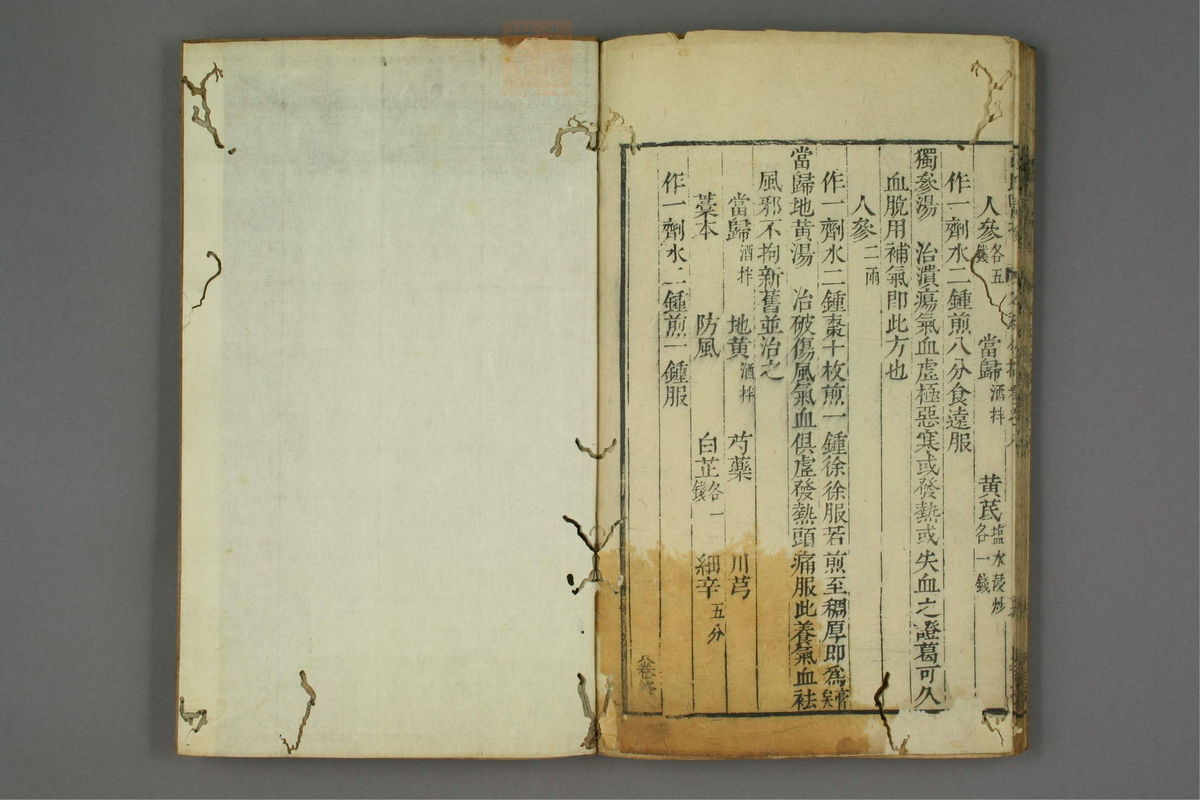 人參各五錢　當歸酒拌　黃芪塩水浸炒各一錢
作一劑水二鍾煎八分食遠服
獨參湯　治潰瘍氣血虛極惡寒或發熱或失血之證葛可久
血脫用補氣即此方也
人參二兩
作一劑水二鍾棗十枚煎一鍾徐徐服若煎至稠厚即為膏矣
當歸地黃湯　治破傷風氣血俱虛發熱頭痛服此養氣血祛
風邪不拘新舊並治之
當歸酒拌　地黃酒拌　芍藥　川芎
藁本　防風　白芷各一錢　細辛五分
作一劑水二鍾煎一鍾服
卷終